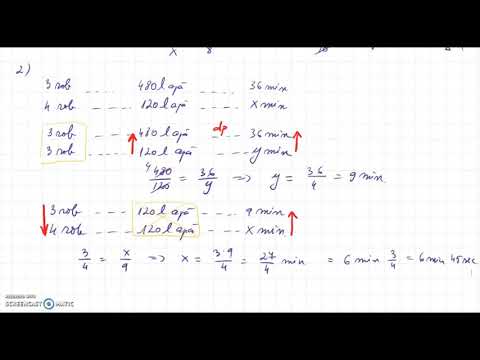 2)
3 rob ---- 480 l apă ---- 36 min
4 rob ---- 120 l apă ---- x min
3 rob ---- 480 l apă dp 36 min
3 rob ---- 120 l apă ---- y min
4 480/120 = 36/y => y = 36/4 = 9 min
3 rob ---- 120 l apă ---- 9 min
4 rob ---- 120 l apă ---- x min
3/4 = x/9 => x = 3·9/4 = 27/4 min = 6 min 3/4 = 6 min 45 sec
RECORDED WITH
SCREENCAST MATIC